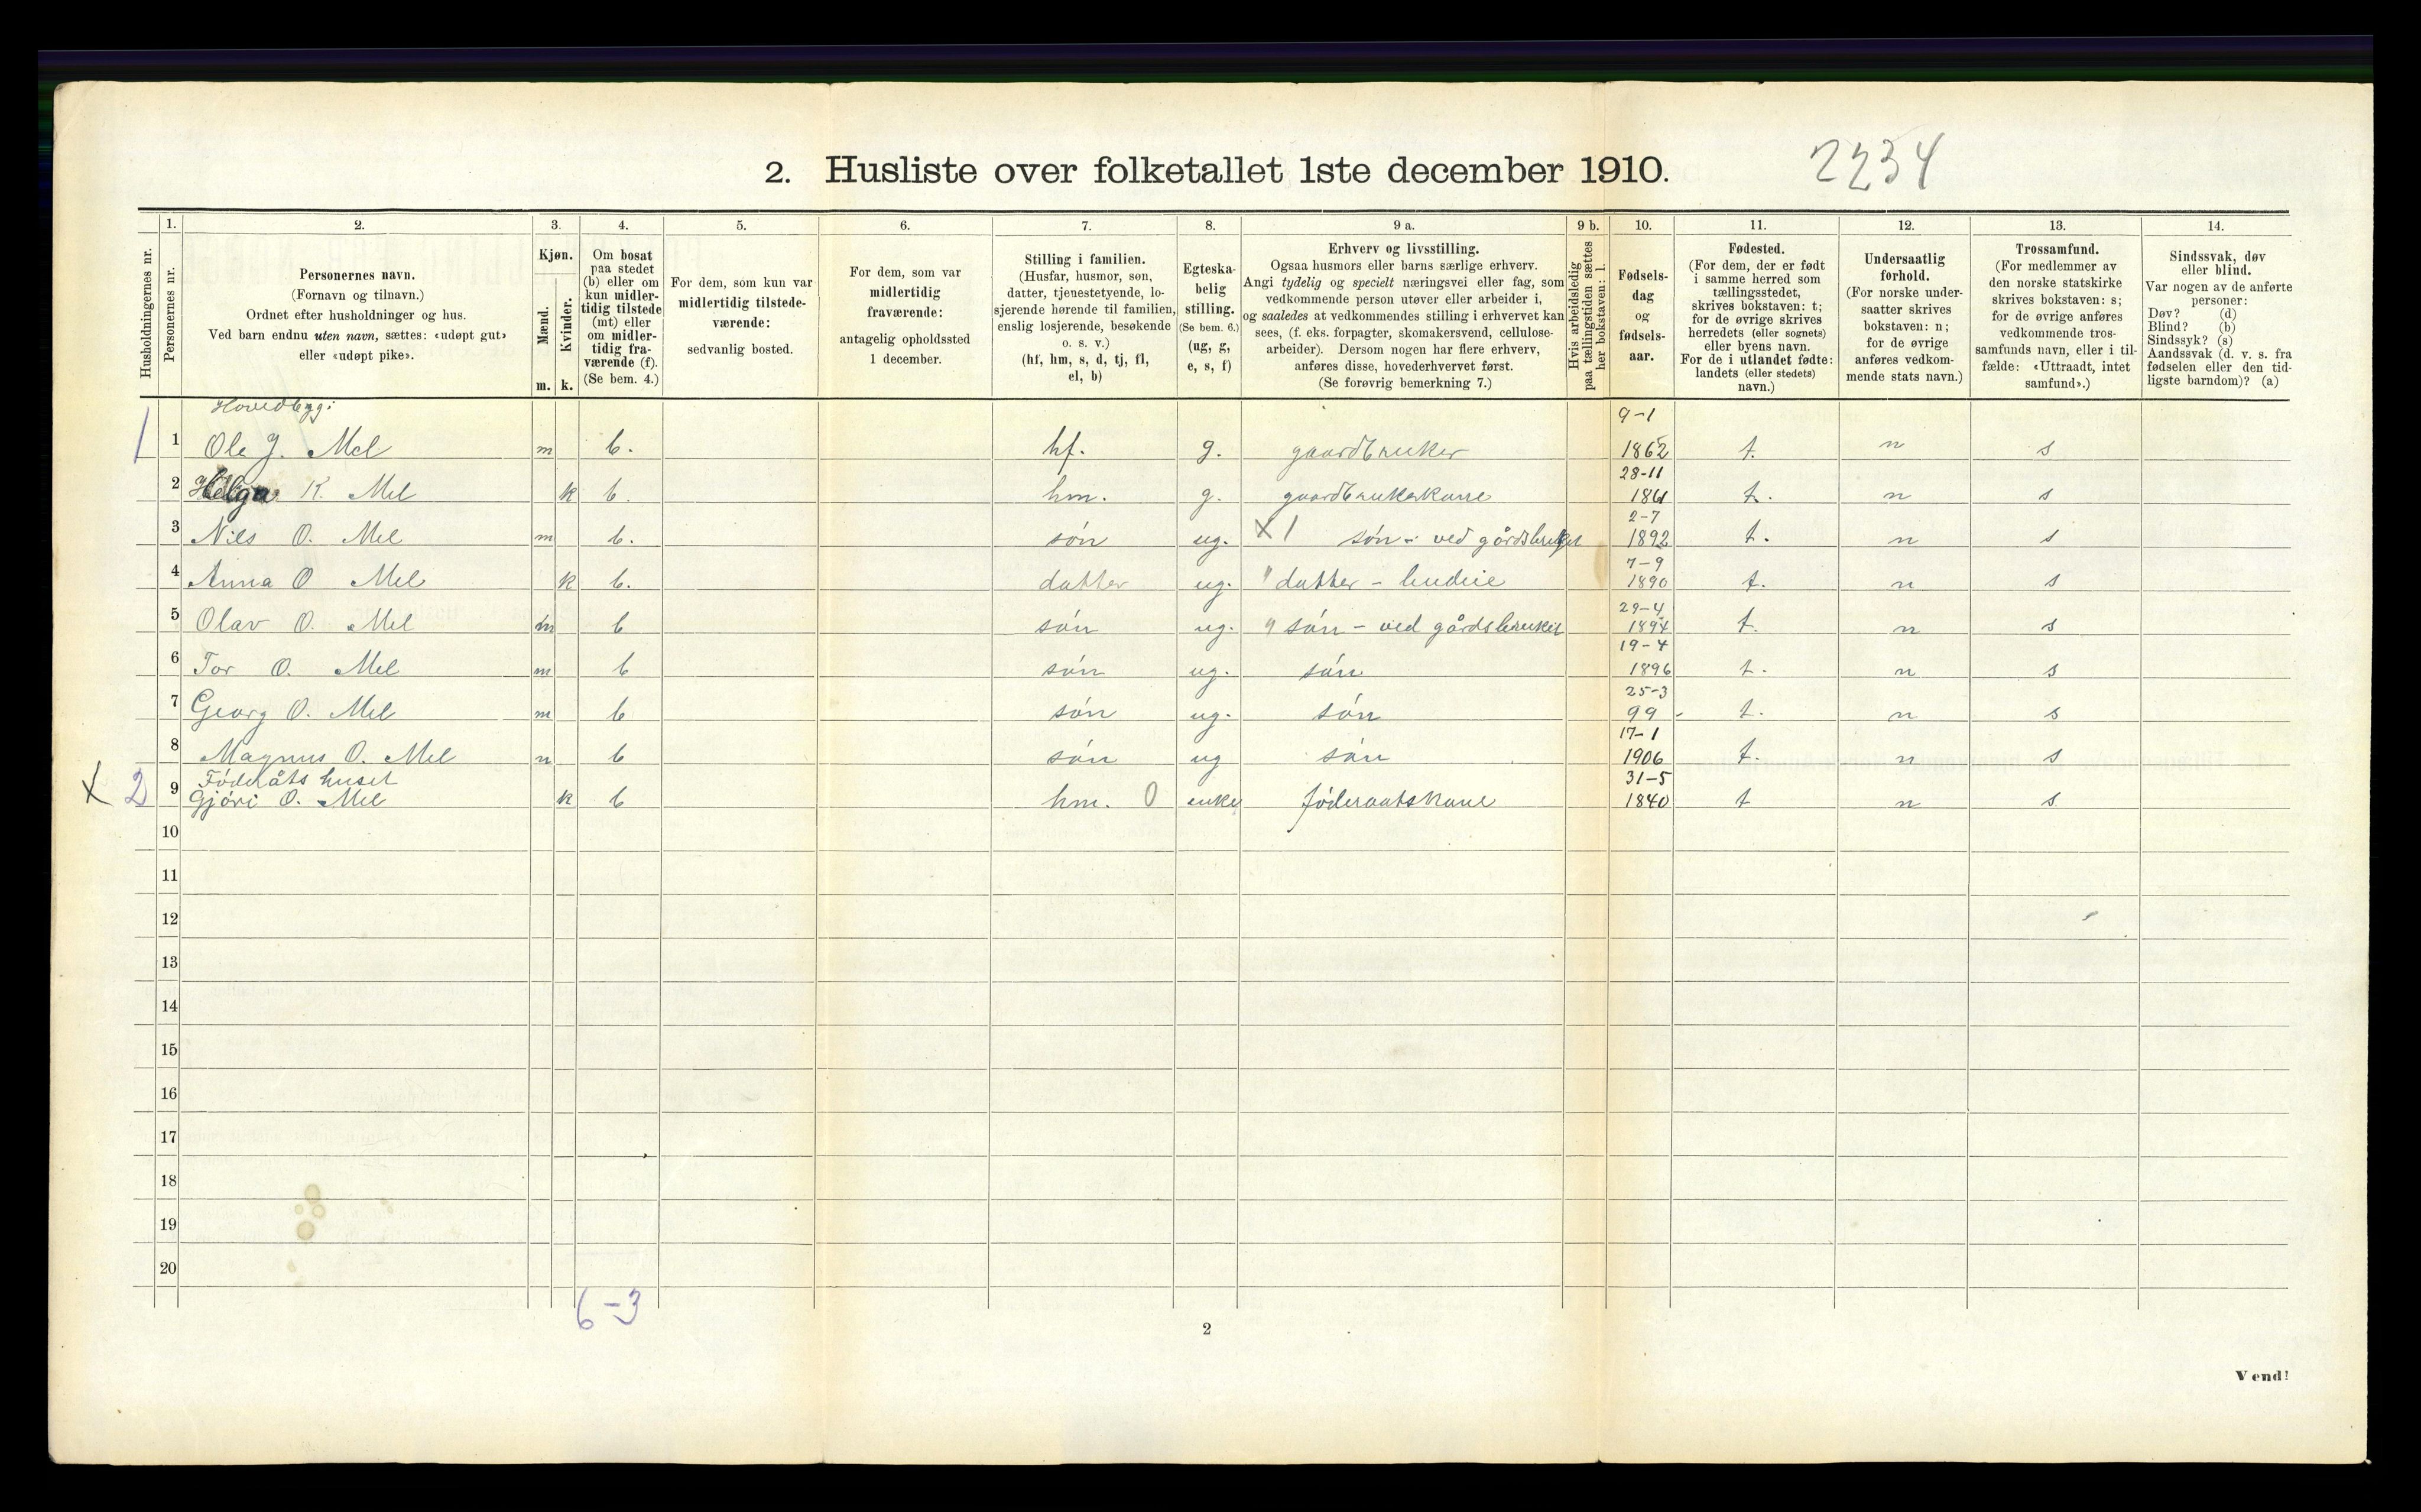 2. Husliste over folketallet 1ste december 1910.
2234
Husholdningernes nr.
1.
Personernes nr.
2.
Personernes navn.
(Fornavn og tilnavn.)
Ordnet efter husholdninger og hus.
Ved barn endnu uten navn, sættes: «udøpt gut»
eller «udøpt pike».
3.
Kjøn.
Mænd.
m.
Kvinder.
k.
4.
Om bosat
paa stedet
(b) eller om
kun midler-
tidig tilstede
(mt) eller
om midler-
tidig fra-
værende (f).
(Se bem. 4.)
5.
For dem, som kun var
midlertidig tilstede-
værende:
sedvanlig bosted.
6.
For dem, som var
midlertidig
fraværende:
antagelig opholdssted
1 december.
7.
Stilling i familien.
(Husfar, husmor, søn,
datter, tjenestetyende, lo-
sjerende hørende til familien,
enslig losjerende, besøkende
o. s. v.)
(hf, hm, s, d, tj, fl,
el, b)
8.
Egteska-
belig
stilling.
(Se bem. 6.)
(ug, g,
e, s, f)
9 a.
Erhverv og livsstilling.
Ogsaa husmors eller barns særlige erhverv.
Angi tydelig og specielt næringsvei eller fag, som
vedkommende person utøver eller arbeider i,
og saaledes at vedkommendes stilling i erhvervet kan
sees, (f. eks. forpagter, skomakersvend, cellulose-
arbeider). Dersom nogen har flere erhverv,
anføres disse, hovederhvervet først.
(Se forøvrig bemerkning 7.)
9 b.
Hvis arbeidsledig
paa tællingstiden sættes
her bokstaven: l.
10.
Fødsels-
dag
og
fødsels-
aar.
11.
Fødested.
(For dem, der er født
i samme herred som
tællingsstedet,
skrives bokstaven: t;
for de øvrige skrives
herredets (eller sognets)
eller byens navn.
For de i utlandet fødte:
landets (eller stedets)
navn.)
12.
Undersaatlig
forhold.
(For norske under-
saatter skrives
bokstaven: n;
for de øvrige
anføres vedkom-
mende stats navn.)
13.
Trossamfund.
(For medlemmer av
den norske statskirke
skrives bokstaven: s;
for de øvrige anføres
vedkommende tros-
samfunds navn, eller i til-
fælde: «Uttraadt, intet
samfund».)
14.
Sindssvak, døv
eller blind.
Var nogen av de anførte
personer:
Døv? (d)
Blind? (b)
Sindssyk? (s)
Aandssvak (d. v. s. fra
fødselen eller den tid-
ligste barndom)? (a)
Hovedbyg:
1 1 Ole J. Mel m b. hf. g. gaardbruker 9-1 1862 t. n s
2 Helga K. Mel k b. hm. g. gaardbrukerkone 28-11 1861 t. n s
3 Nils O. Mel m b. søn ug. X 1 søn - ved gårdsbruket 2-7 1892 t. n s
4 Anna O Mel k b. datter ug. " datter - budeie 7-9 1890 t. n s
5 Olav O. Mel m b søn ug. " søn - ved gårdsbruket 29-4 1894 t. n s
6 Tor O. Mel m b søn ug. søn 19-4 1896 t. n s
7 Georg O. Mel m b søn ug. søn 25-3 99 - t. n s
8 Magnus O. Mel m b søn ug søn 17-1 1906 t. n s
Føderåts huset
X 2 9 Gjøri O. Mel k b hm. 0 enke føderaatskone 31-5 1840 t n s
10
11
12
13
14
15
16
17
18
19
20
6-3
2
Vend!